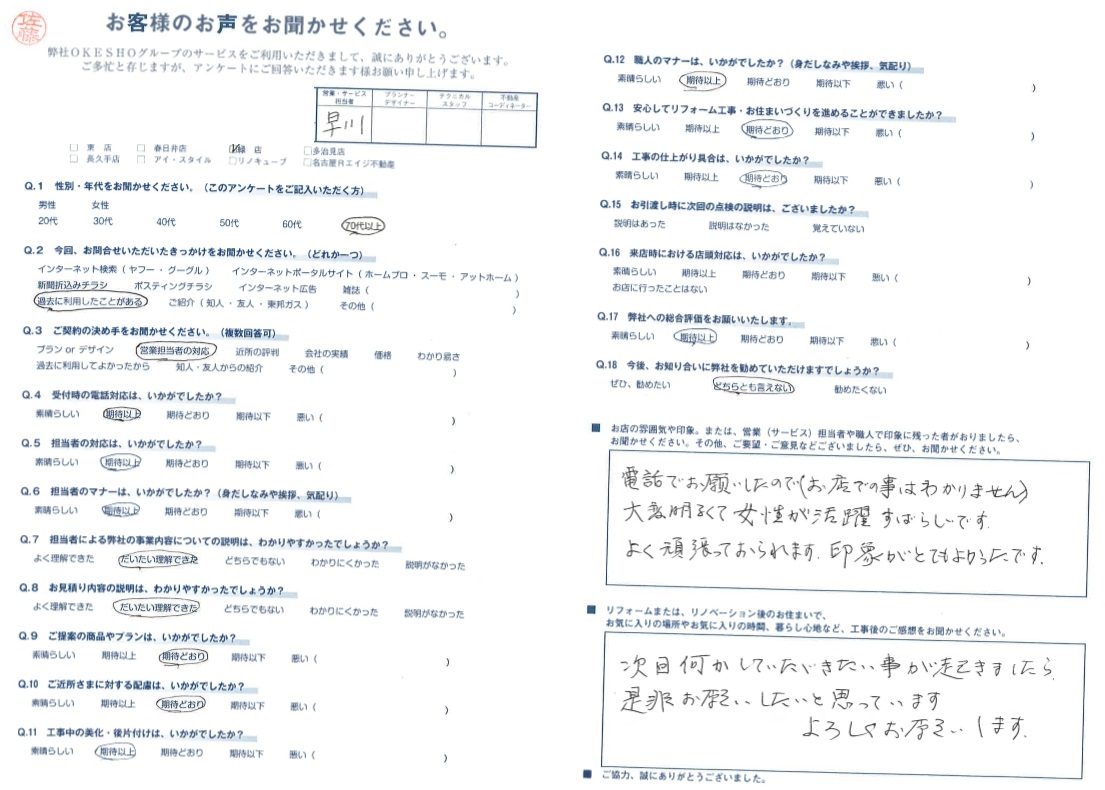 佐藤
お客様のお声をお聞かせください。
弊社OKESHOグループのサービスをご利用いただきまして、誠にありがとうございます。
ご多忙と存じますが、アンケートにご回答いただきます様お願い申し上げます。
営業・サービス担当者 プランナーデザイナー テクニカルスタッフ 不動産コーディネーター
早川
□ 東 店 □ 春日井店 □緑 店 □多治見店
□ 長久手店 □ アイ・スタイル □リノキューブ □名古屋Rエイジ不動産
Q.1 性別・年代をお聞かせください。（このアンケートをご記入いただく方）
男性 女性
20代 30代 40代 50代 60代 70代以上
Q.2 今回、お問合せいただいたきっかけをお聞かせください。（どれか一つ）
インターネット検索（ ヤフー・グーグル ） インターネットポータルサイト（ ホームプロ・スーモ・アットホーム ）
新聞折込みチラシ ポスティングチラシ インターネット広告 雑誌（ ）
過去に利用したことがある ご紹介（ 知人・友人・東邦ガス ） その他（ ）
Q.3 ご契約の決め手をお聞かせください。（複数回答可）
プラン or デザイン 営業担当者の対応 近所の評判 会社の実績 価格 わかり易さ
過去に利用してよかったから 知人・友人からの紹介 その他（ ）
Q.4 受付時の電話対応は、いかがでしたか？
素晴らしい 期待以上 期待どおり 期待以下 悪い（ ）
Q.5 担当者の対応は、いかがでしたか？
素晴らしい 期待以上 期待どおり 期待以下 悪い（ ）
Q.6 担当者のマナーは、いかがでしたか？（身だしなみや挨拶、気配り）
素晴らしい 期待以上 期待どおり 期待以下 悪い（ ）
Q.7 担当者による弊社の事業内容についての説明は、わかりやすかったでしょうか？
よく理解できた だいたい理解できた どちらでもない わかりにくかった 説明がなかった
Q.8 お見積り内容の説明は、わかりやすかったでしょうか？
よく理解できた だいたい理解できた どちらでもない わかりにくかった 説明がなかった
Q.9 ご提案の商品やプランは、いかがでしたか？
素晴らしい 期待以上 期待どおり 期待以下 悪い（ ）
Q.10 ご近所さまに対する配慮は、いかがでしたか？
素晴らしい 期待以上 期待どおり 期待以下 悪い（ ）
Q.11 工事中の美化・後片付けは、いかがでしたか？
素晴らしい 期待以上 期待どおり 期待以下 悪い（ ）
Q.12 職人のマナーは、いかがでしたか？（身だしなみや挨拶、気配り）
素晴らしい 期待以上 期待どおり 期待以下 悪い（ ）
Q.13 安心してリフォーム工事・お住まいづくりを進めることができましたか？
素晴らしい 期待以上 期待どおり 期待以下 悪い（ ）
Q.14 工事の仕上がり具合は、いかがでしたか？
素晴らしい 期待以上 期待どおり 期待以下 悪い（ ）
Q.15 お引渡し時に次回の点検の説明は、ございましたか？
説明はあった 説明はなかった 覚えていない
Q.16 来店時における店頭対応は、いかがでしたか？
素晴らしい 期待以上 期待どおり 期待以下 悪い（ ）
お店に行ったことはない
Q.17 弊社への総合評価をお願いいたします。
素晴らしい 期待以上 期待どおり 期待以下 悪い（ ）
Q.18 今後、お知り合いに弊社を勧めていただけますでしょうか？
ぜひ、勧めたい どちらとも言えない 勧めたくない
■ お店の雰囲気や印象。または、営業（サービス）担当者や職人で印象に残った者がおりましたら、
お聞かせください。その他、ご要望・ご意見などございましたら、ぜひ、お聞かせください。
電話でお願いしたので(お店での事はわかりません)
大変明るくて女性が活躍すばらしいです.
よく頑張っておられます. 印象がとてもよかったです.
■ リフォームまたは、リノベーション後のお住まいで、
お気に入りの場所やお気に入りの時間、暮らし心地など、工事後のご感想をお聞かせください。
次回何かしていただきたい事が起きましたら.
是非お願いしたいと思っています
よろしくお願いします.
■ ご協力、誠にありがとうございました。